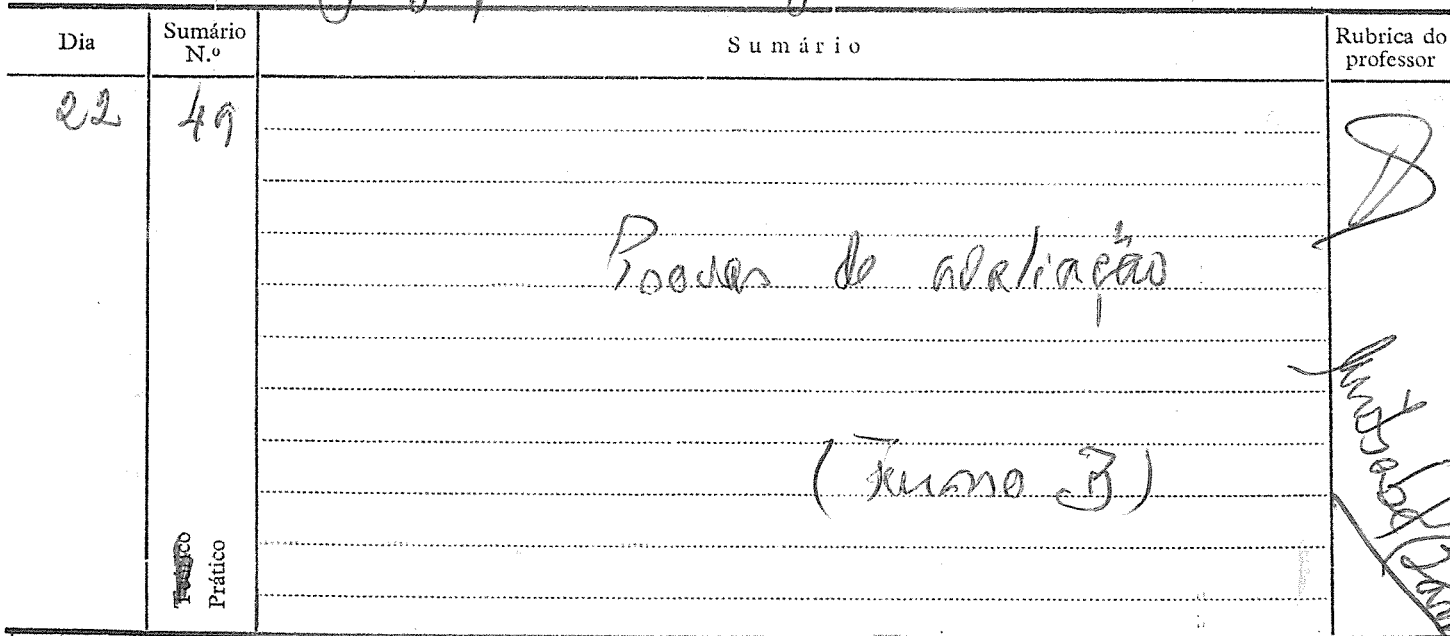 Dia
Sumário
N.º
Sumário
Rubrica do
professor
22
49
Provas de avaliação
(Turno B)
Prático